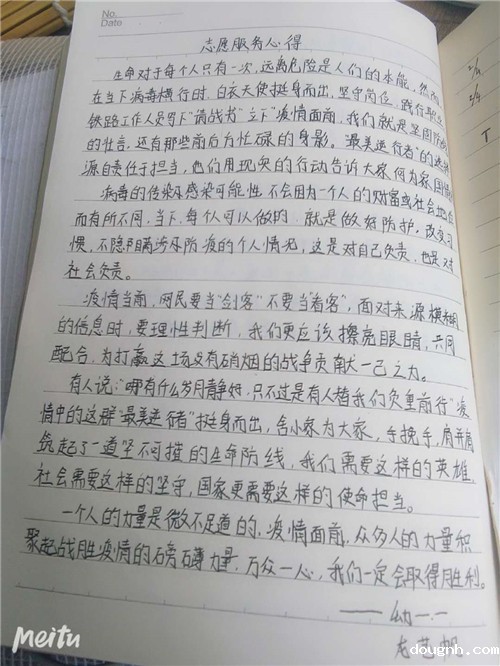 No.
Date
志愿服务心得
生命对于每个人只有一次,远离危险是人们的本能,然而
在当下病毒横行时,白衣天使挺身而出,坚守岗位,践行职
铁路工作人员写下"请战书"立下"疫情面前,我们就是坚固防
的壮言,还有那些前后方忙碌的身影。"最美逆行者"的选择
源自责任于担当,他们用现实的行动告诉大家何为家国情
病毒的传染及感染可能性不会因为一个人的财富或社会地
而有所不同,当下,每个人可以做的,就是做好防护,改变习
惯,不隐瞒涉及防疫的个人情况,这是对自己负责,也是对
社会负责。
疫情当前,网民要当"剑客"不要当"看客",面对来源模糊
的信息时,要理性判断,我们更应该擦亮眼睛,共同
配合,为打赢这场没有硝烟的战争贡献一己之力。
有人说:"哪有什么岁月静好,只不过是有人替我们负重前行"疫
情中的这群"最美逆行者"挺身而出,舍小家为大家,手挽手,肩并肩
筑起了一道坚不可摧的生命防线,我们需要这样的英雄,
社会需要这样的坚守,国家更需要这样的使命担当。
一个人的力量是微不足道的,疫情面前,众多人的力量积
聚起战胜疫情的磅礴力量,万众一心,我们一定会取得胜利。
——幼一.一
龙艺帆
Meitu
www.dougnh.com